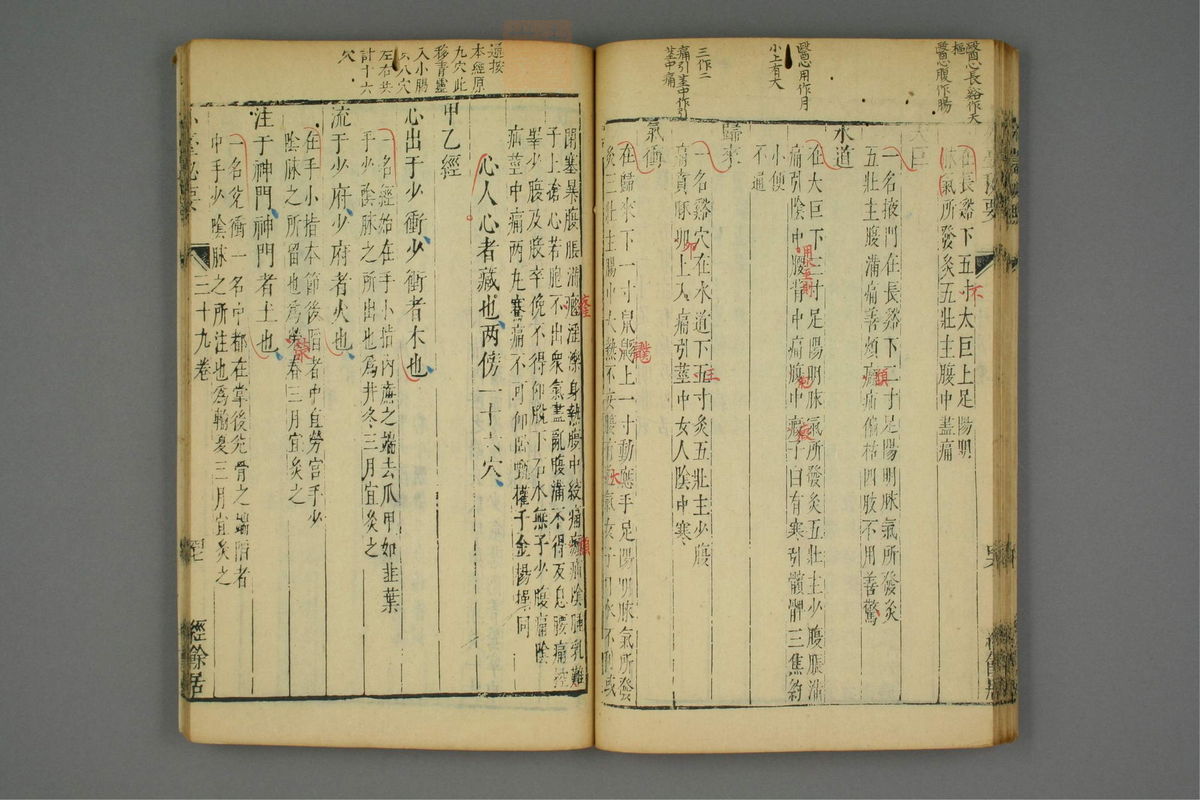 醫心長谿作大
樞
醫心腹作腸
醫心用作月
小上有大
三作二
痛引莖中作引
莖中痛
在長谿下五寸大巨上足陽明
脉氣所發灸五壯主腹中盡痛
大巨
一名掖門在長谿下二寸足陽明脉氣所發灸
五壯主腹滿痛善煩痛偏枯四肢不用善驚
水道
在大巨下三寸足陽明脉氣所發灸五壯主少腹脹滿
痛引陰中腰背中痛腹中子曰有寒引髖髀三焦約
小便
不通
歸來
一名谿穴在水道下五寸灸五壯主少腹
痛賁豚卵上入痛引莖中女人陰中寒
氣衝
在歸來下一寸鼠鼷上一寸動應手足陽明脉氣所發
灸三壯主腸中大熱不安腹有氣女子月水不利或
閉塞暴腹脹滿癃淫濼身熱腹中絞痛陰腫乳難
子上搶心若胞不出衆氣盡亂腹滿不得反息腰痛控
睾少腹及股卒俛不得仰脫下石水無子少腹痛陰
疝莖中痛兩丸騫痛不可仰臥甄權千金楊操同
心人心者藏也兩傍一十六穴
甲乙經
心出于少衝少衝者木也
一名經始在手小指內廉之端去爪甲如韭葉
手少陰脉之所出也爲井冬三月宜灸之
流于少府少府者火也
在手小指本節後陷者中直勞宮手少
陰脉之所留也爲滎春三月宜灸之
注于神門神門者土也
一名兊衝一名中都在掌後兊骨之端陷者
中手少陰脉之所注也爲輸夏三月宜灸之
外臺祕要
三十九卷
經餘居
逆按
本經原
九穴此
移青靈
入小腸
八穴
左右共
計十六
穴